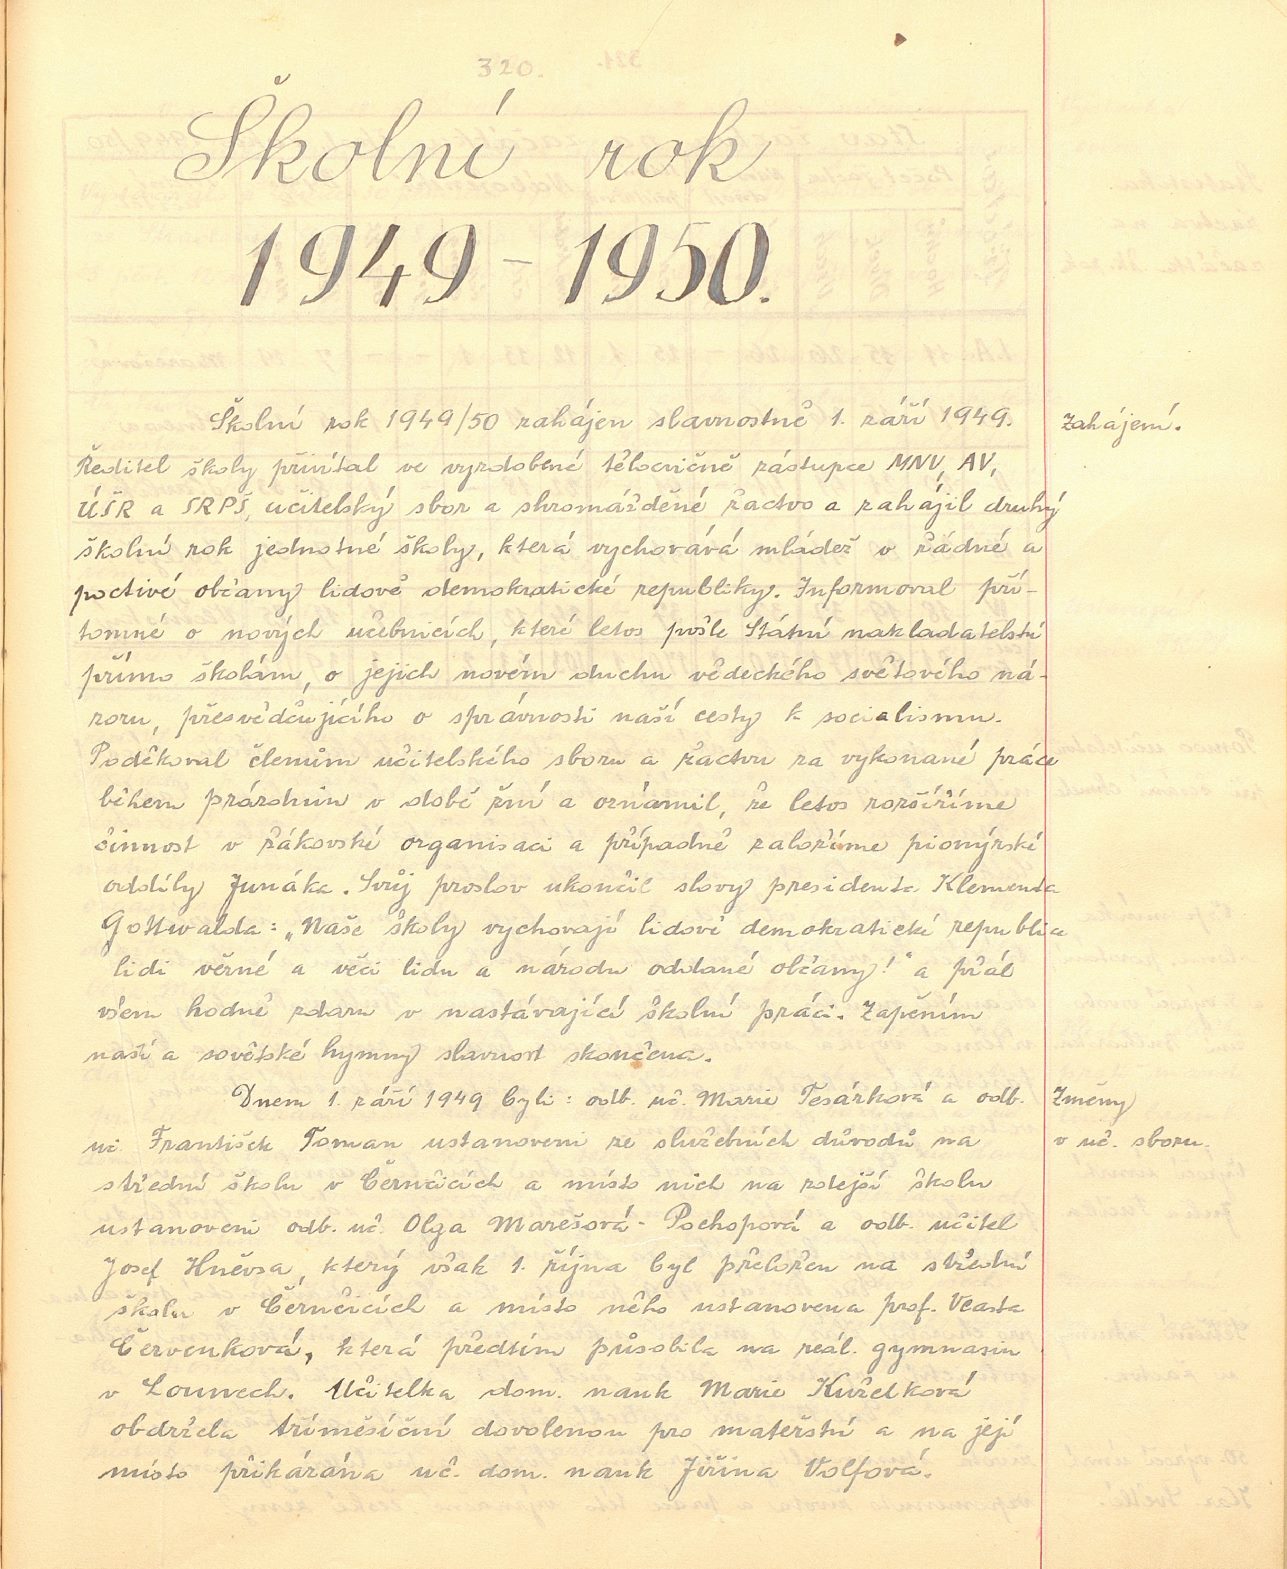 320.
Školní rok
1949 – 1950.
Školní rok 1949/50 zahájen slavnostně 1. září 1949.
Zahájení.
Ředitel školy přivítal ve vyzdobené tělocvičně zástupce MNV, AV,
ÚŠR a SRPŠ, učitelský sbor a shromážděné žactvo a zahájil druhý
školní rok jednotné školy, která vychovává mládež v řádné a
poctivé občany lidově demokratické republiky. Informoval pří-
tomné o nových učebnicích, které letos pošle Státní nakladatelství
přímo školám, o jejich novém duchu vědeckého světového ná-
zoru, přesvědčujícího o správnosti naší cesty k socialismu.
Poděkoval členům učitelského sboru a žactvu za vykonané práce
během prázdnin v době žní a oznámil, že letos rozšíříme
činnost v žákovské organisaci a případně založíme pionýrské
oddíly Junáka. Svůj proslov ukončil slovy presidenta Klementa
Gottwalda: „Naše školy vychovají lidově demokratické republice
lidi věrné a věci lidu a národu oddané občany!" a přál
všem hodně zdaru v nastávající školní práci. Zapěním
naší a sovětské hymny slavnost skončena.
Dnem 1. září 1949 byli: odb. uč. Marie Tesárková a odb.
Změny
uč František Toman ustanoveni ze služebních důvodů na
v uč. sboru.
střední školu v Černčicích a místo nich na zdejší školu
ustanoveni odb. uč. Olga Marešová - Pochopová a odb. učitel
Josef Hněvsa, který však 1. října byl přeložen na střední
školu v Černčicích a místo něho ustanovena prof. Vlasta
Červenková, která předtím působila na reál. gymnasiu
v Lounech. Učitelka dom. nauk Marie Kuželková
obdržela tříměsíční dovolenou pro mateřství a na její
místo přikázána uč. dom. nauk Jiřina Volfová.